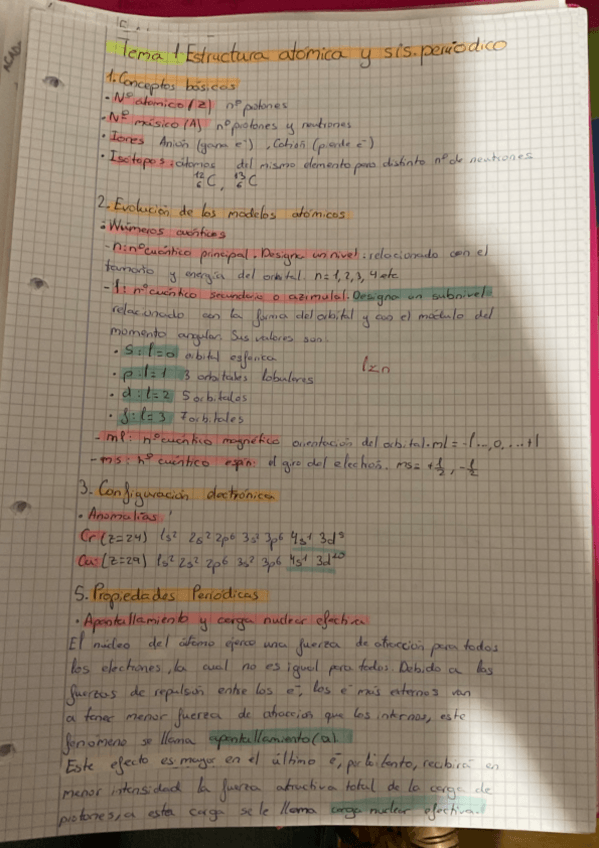 Tema 1 Estructura atómica y sis. periódico
1. Conceptos básicos
· Nº atómico (Z) nº protones
· Nº másico (A) nº protones y neutrones
· Iones Anión (gana e⁻), Catión (pierde e⁻)
· Isótopos: átomos del mismo elemento pero distinto nº de neutrones
¹²₆C, ¹³₆C
2. Evolución de los modelos atómicos
· Números cuánticos
- n: nº cuántico principal. Designa un nivel: relacionado con el
tamaño y energía del orbital. n = 1, 2, 3, 4 etc
- l: nº cuántico secundario o azimutal. Designa un subnivel
relacionado con la forma del orbital y con el módulo del
momento angular. Sus valores son:
· S: l=0 orbital esférica
· p: l=1 3 orbitales lobulares
l<n
· d: l=2 5 orbitales
· f: l=3 7 orbitales
- ml: nº cuántico magnético orientación del orbital. ml = -l..., 0, ...+l
- ms: nº cuántico espín: el giro del electrón. ms = +1/2, -1/2
3. Configuración electrónica
· Anomalías
Cr (z=24) 1s² 2s² 2p⁶ 3s² 3p⁶ 4s¹ 3d⁵
Cu: (z=29) 1s² 2s² 2p⁶ 3s² 3p⁶ 4s¹ 3d¹⁰
5. Propiedades Periódicas
· Apantallamiento y carga nuclear efectiva
El núcleo del átomo ejerce una fuerza de atracción para todos
los electrones, la cual no es igual para todos. Debido a las
fuerzas de repulsión entre los e⁻, los e⁻ más externos van
a tener menor fuerza de atracción que los internos, este
fenómeno se llama apantallamiento (a)
Este efecto es mayor en el último e⁻, por lo tanto, recibirá en
menor intensidad la fuerza atractiva total de la carga de
protones, a esta carga se le llama carga nuclear efectiva.